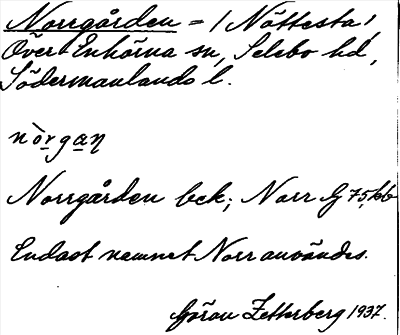 Norrgården = / Nöttesta /
Över Enhörna sn, Selebo hd,
Södermanlands l.
nòrgaṇ
Norrgården bek; Norr G 75, kb
Endast namnet Norr användes.
Göran Zetterberg 1937.